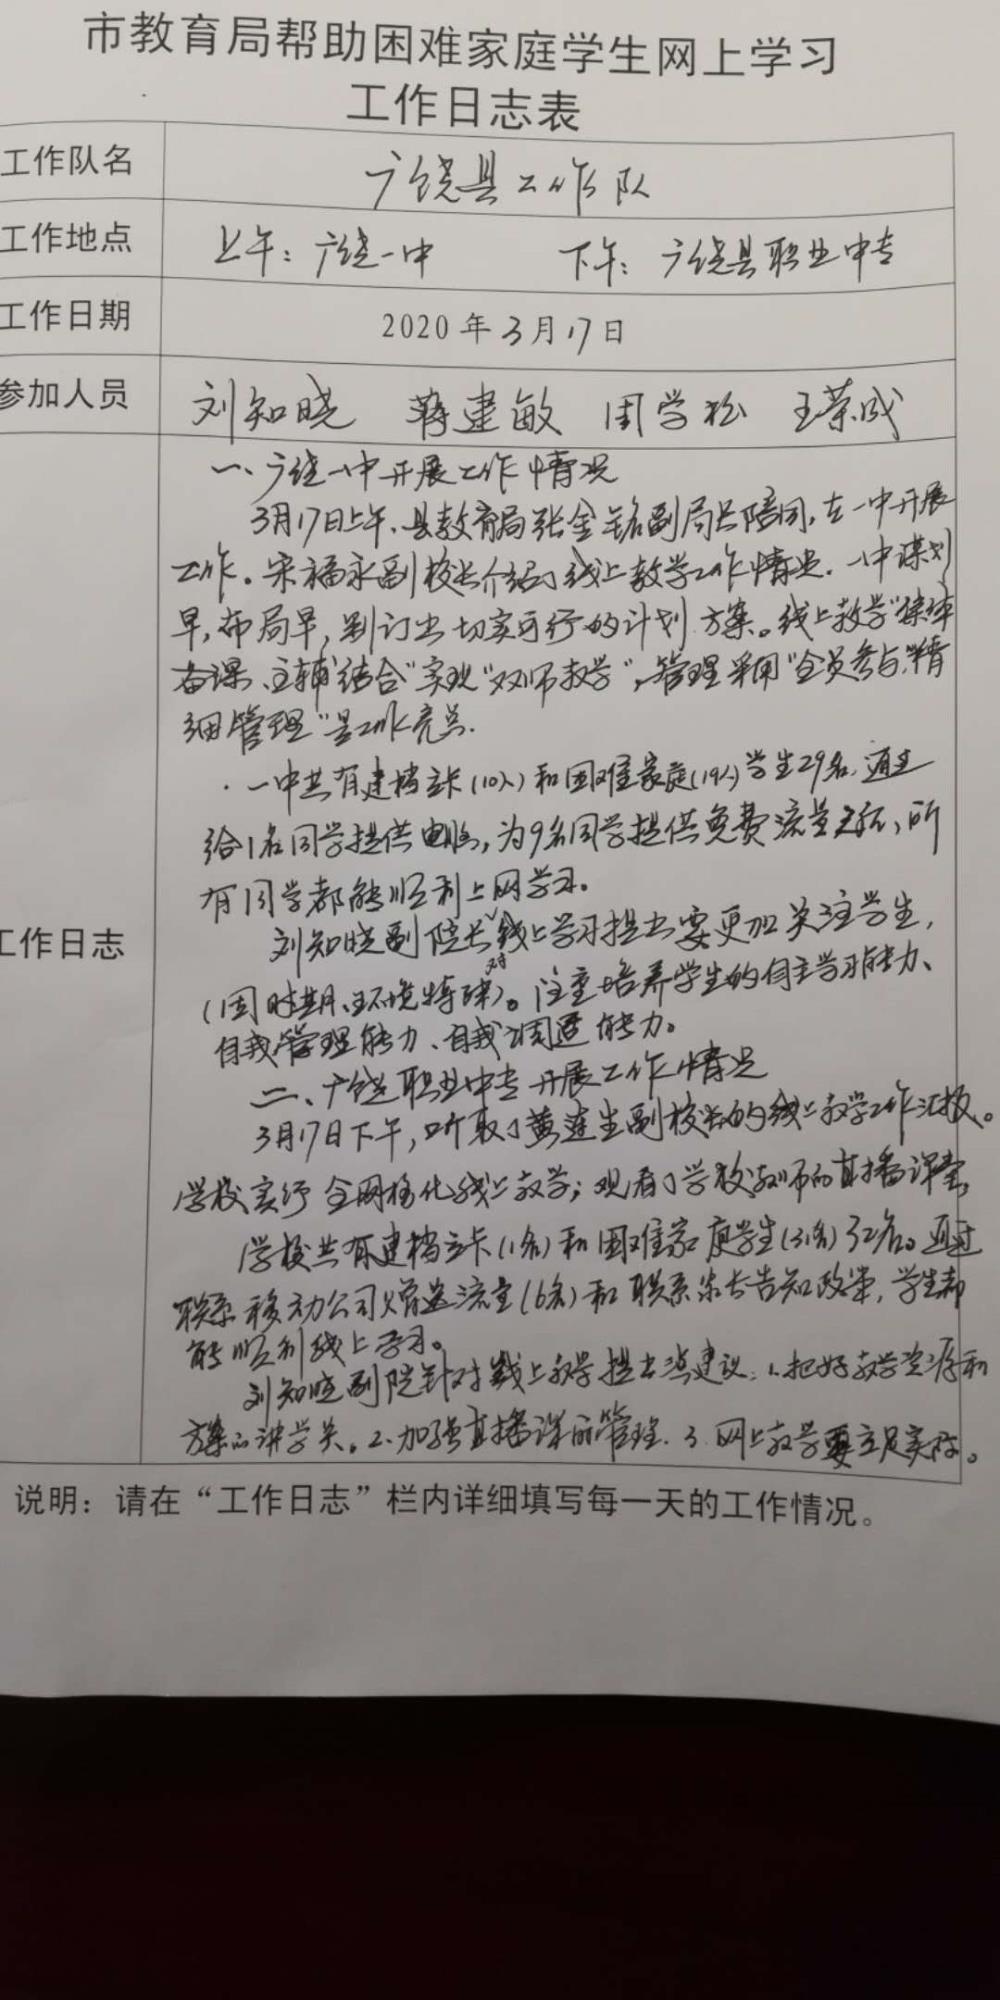 市教育局帮助困难家庭学生网上学习
工作日志表
工作队名 广饶县工作队
工作地点 上午：广饶一中 下午：广饶县职业中专
工作日期 2020年3月17日
参加人员 刘知晓 蒋建敏 周学松 王荣成
工作日志
一、广饶一中开展工作情况
3月17日上午，县教育局张金铭副局长陪同，在一中开展
工作。宋福永副校长介绍了线上教学工作情况。一中谋划
早，布局早，制订出切实可行的计划方案。线上教学“集体
备课、主辅结合”实现“双师教学”，管理采用“全员参与、精
细管理”是工作亮点.
一中共有建档立卡(10人)和困难家庭(19人)学生29名，通过
给1名同学提供电脑，为9名同学提供免费流量支持，所
有同学都能顺利上网学习。
刘知晓副院长对线上学习提出要更加关注学生，
(因时期、环境特殊)。注重培养学生的自主学习能力、
自我管理能力、自我调适能力。
二、广饶职业中专开展工作情况
3月17日下午，听取了黄莲生副校长的线上教学工作汇报。
学校实行全网格化线上教学；观看了学校教师的直播课堂
学校共有建档立卡(1名)和困难家庭学生(31名)32名。通过
联系移动公司赠送流量(6名)和联系家长告知政策，学生都
能顺利线上学习。
刘知晓副院针对线上教学提出建议：1.把好教学资源和
方案的讲学关。2.加强直播课的管理.3.网上教学要立足实际。
说明：请在“工作日志”栏内详细填写每一天的工作情况。